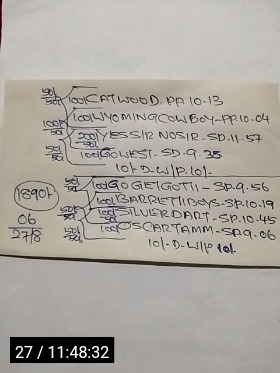 50/50 100/CATWOOD.PP.10-13
100/WYOMINGCOWBOY-PP.10-04
100/50 200/50 YESSIR NOSIR-SD.11-57
50/50 100/GOWEST-SD.9.35
10/-D.W/P.10/-
50/50 100/GOGIEIGOTTI-SP.9-56
100/BARRETTIBOYS-SP.10-19
50/50 100/SILVERDART-SP.10-45
50/50 100/OSCARTAMM-SP.9-06
10/-D-W/P 10/-
1890/-
06
27/8
27 / 11:48:32